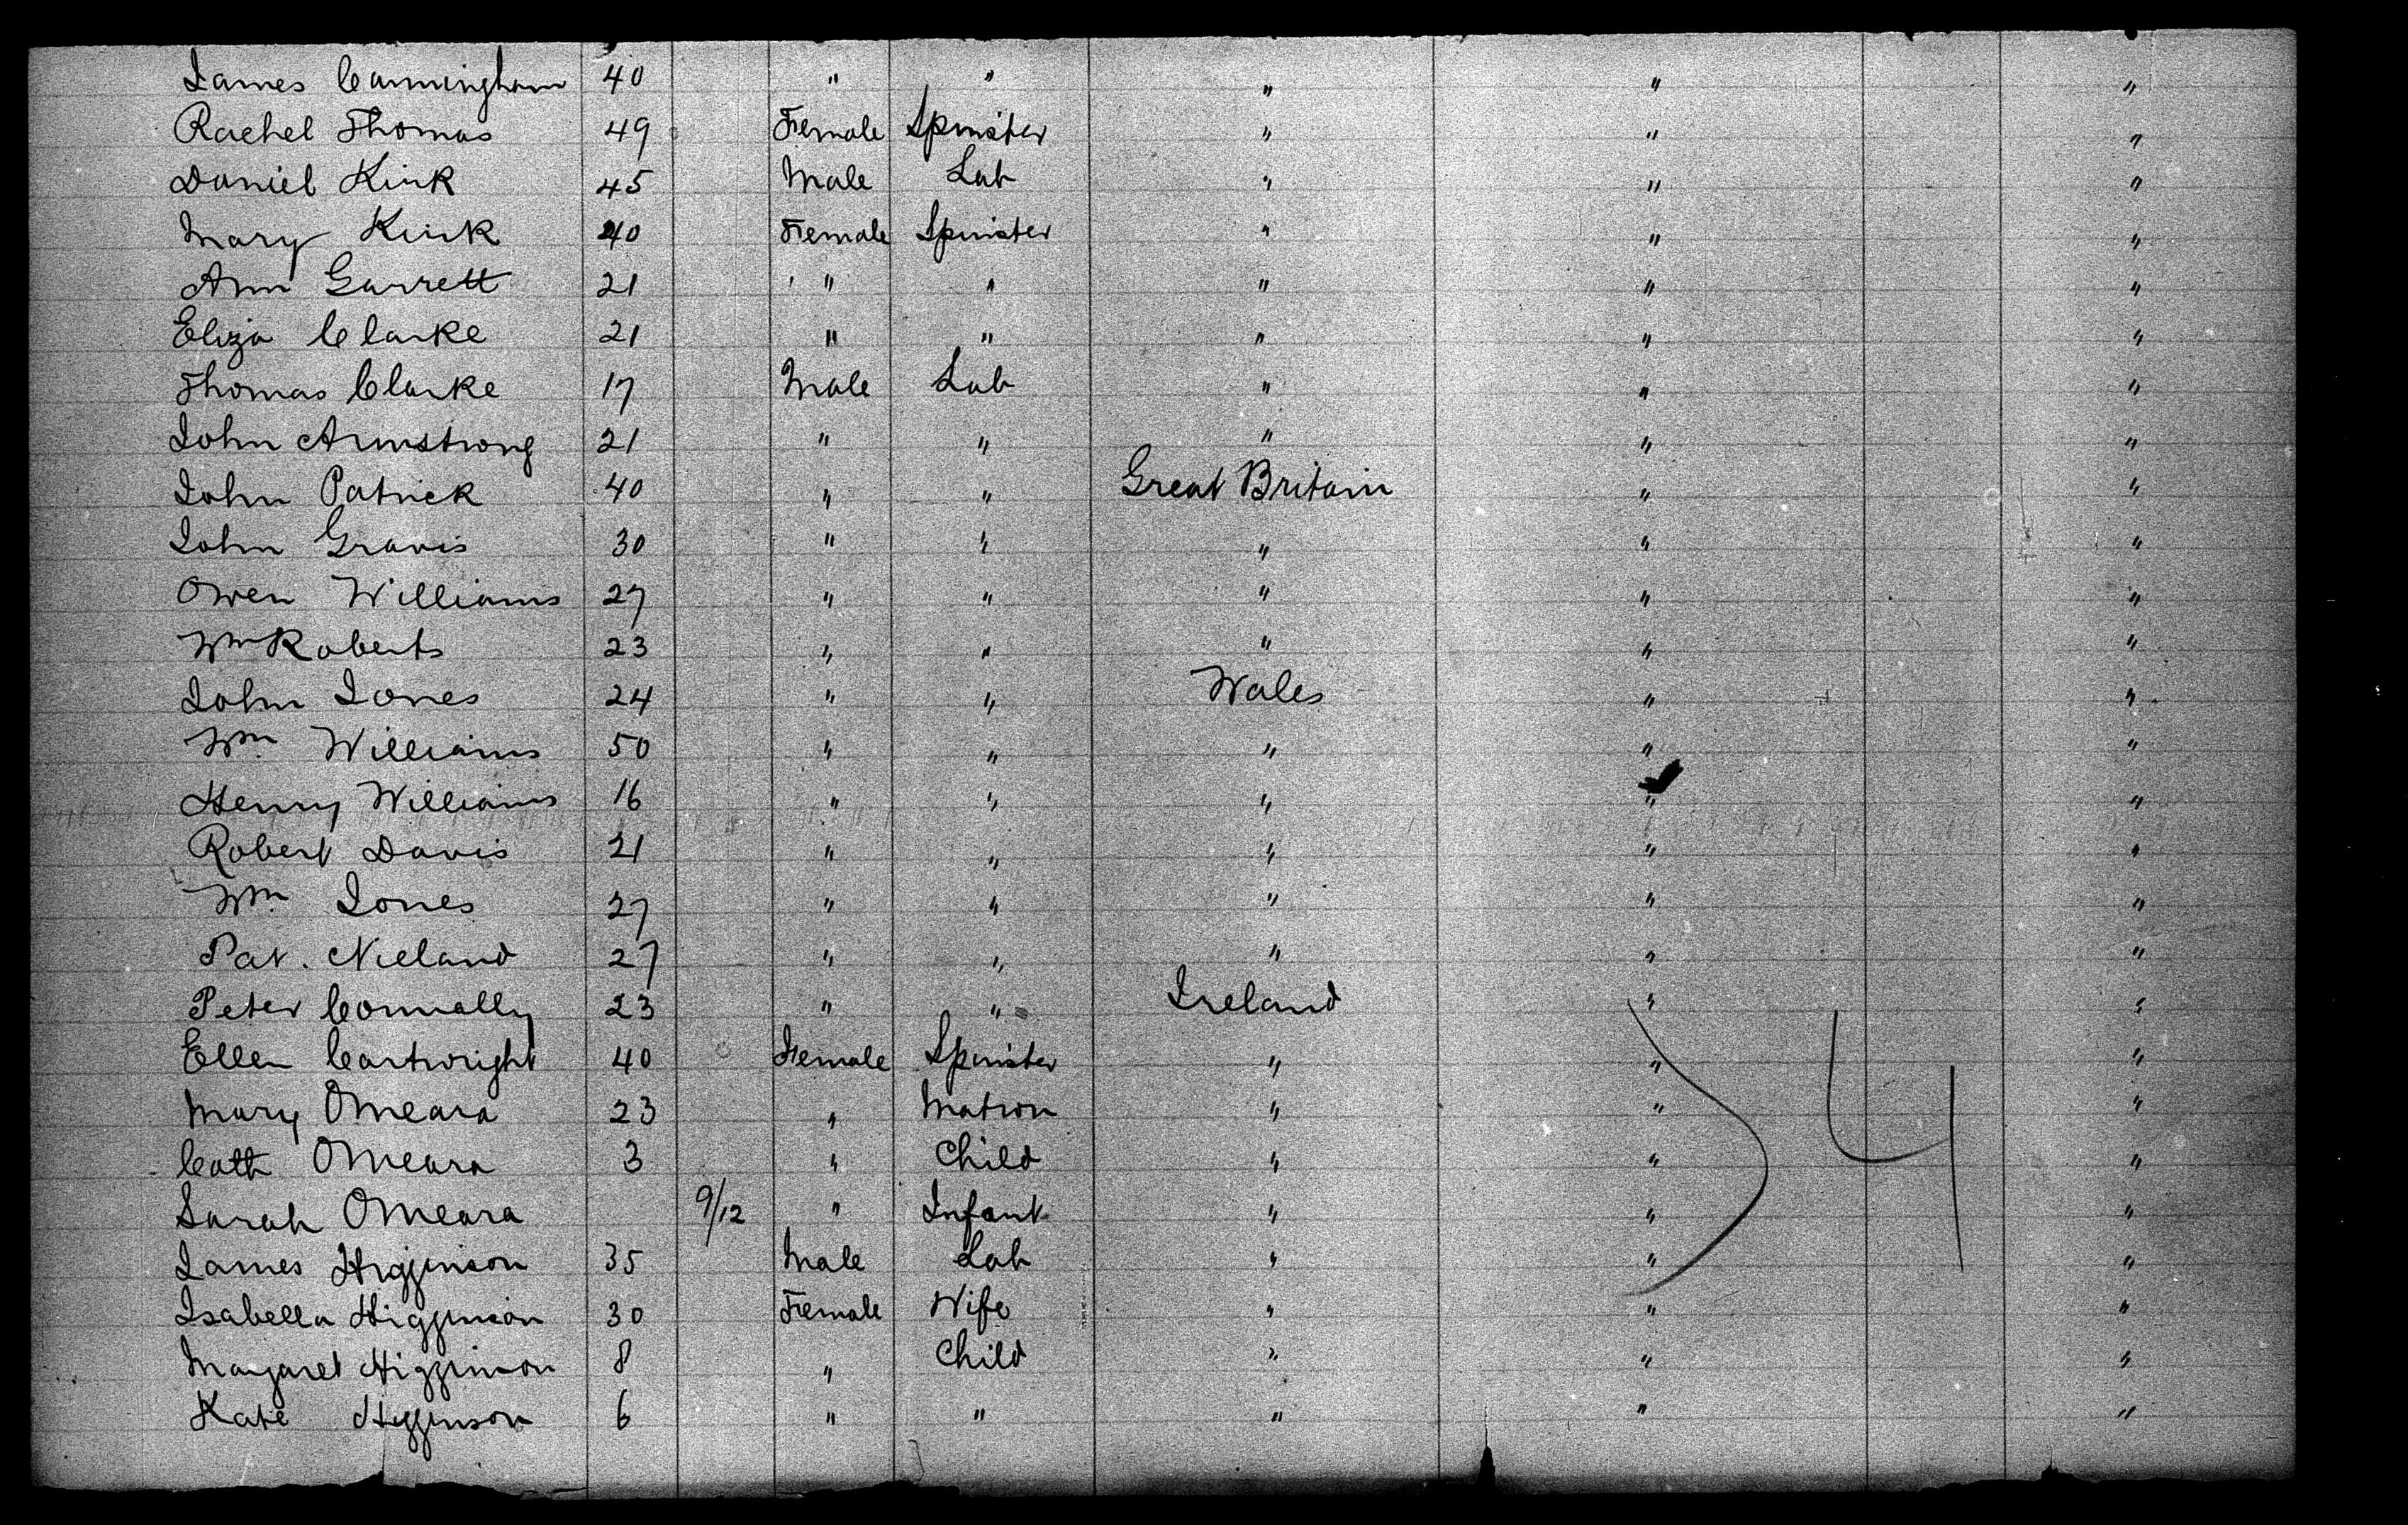 James Cunningham 40 " " " " "
Rachel Thomas 49 Female Spinster " " "
Daniel Kirk 45 Male Lab " " "
Mary Kirk 40 Female Spinster " " "
Ann Garrett 21 " " " " "
Eliza Clarke 21 " " " " "
Thomas Clarke 17 Male Lab " " "
John Armstrong 21 " " " " "
John Patrick 40 " " Great Britain " "
John Gravis 30 " " " " "
Owen Williams 27 " " " " "
Wm Roberts 23 " " " " "
John Jones 24 " " Wales " "
Wm Williams 50 " " " " "
Henry Williams 16 " " " " "
Robert Davis 21 " " " " "
Wm Jones 27 " " " " "
Pat. Nieland 27 " " " " "
Peter Connally 23 " " Ireland " "
Ellen Cartwright 40 Female Spinster " " "
Mary OMeara 23 " Matron " " "
Cath OMeara 3 " Child " " "
Sarah OMeara 9/12 " Infant " " "
James Higginson 35 Male Lab " " "
Isabella Higginson 30 Female Wife " " "
Margaret Higginson 8 " Child " " "
Kate Higginson 6 " " " " "